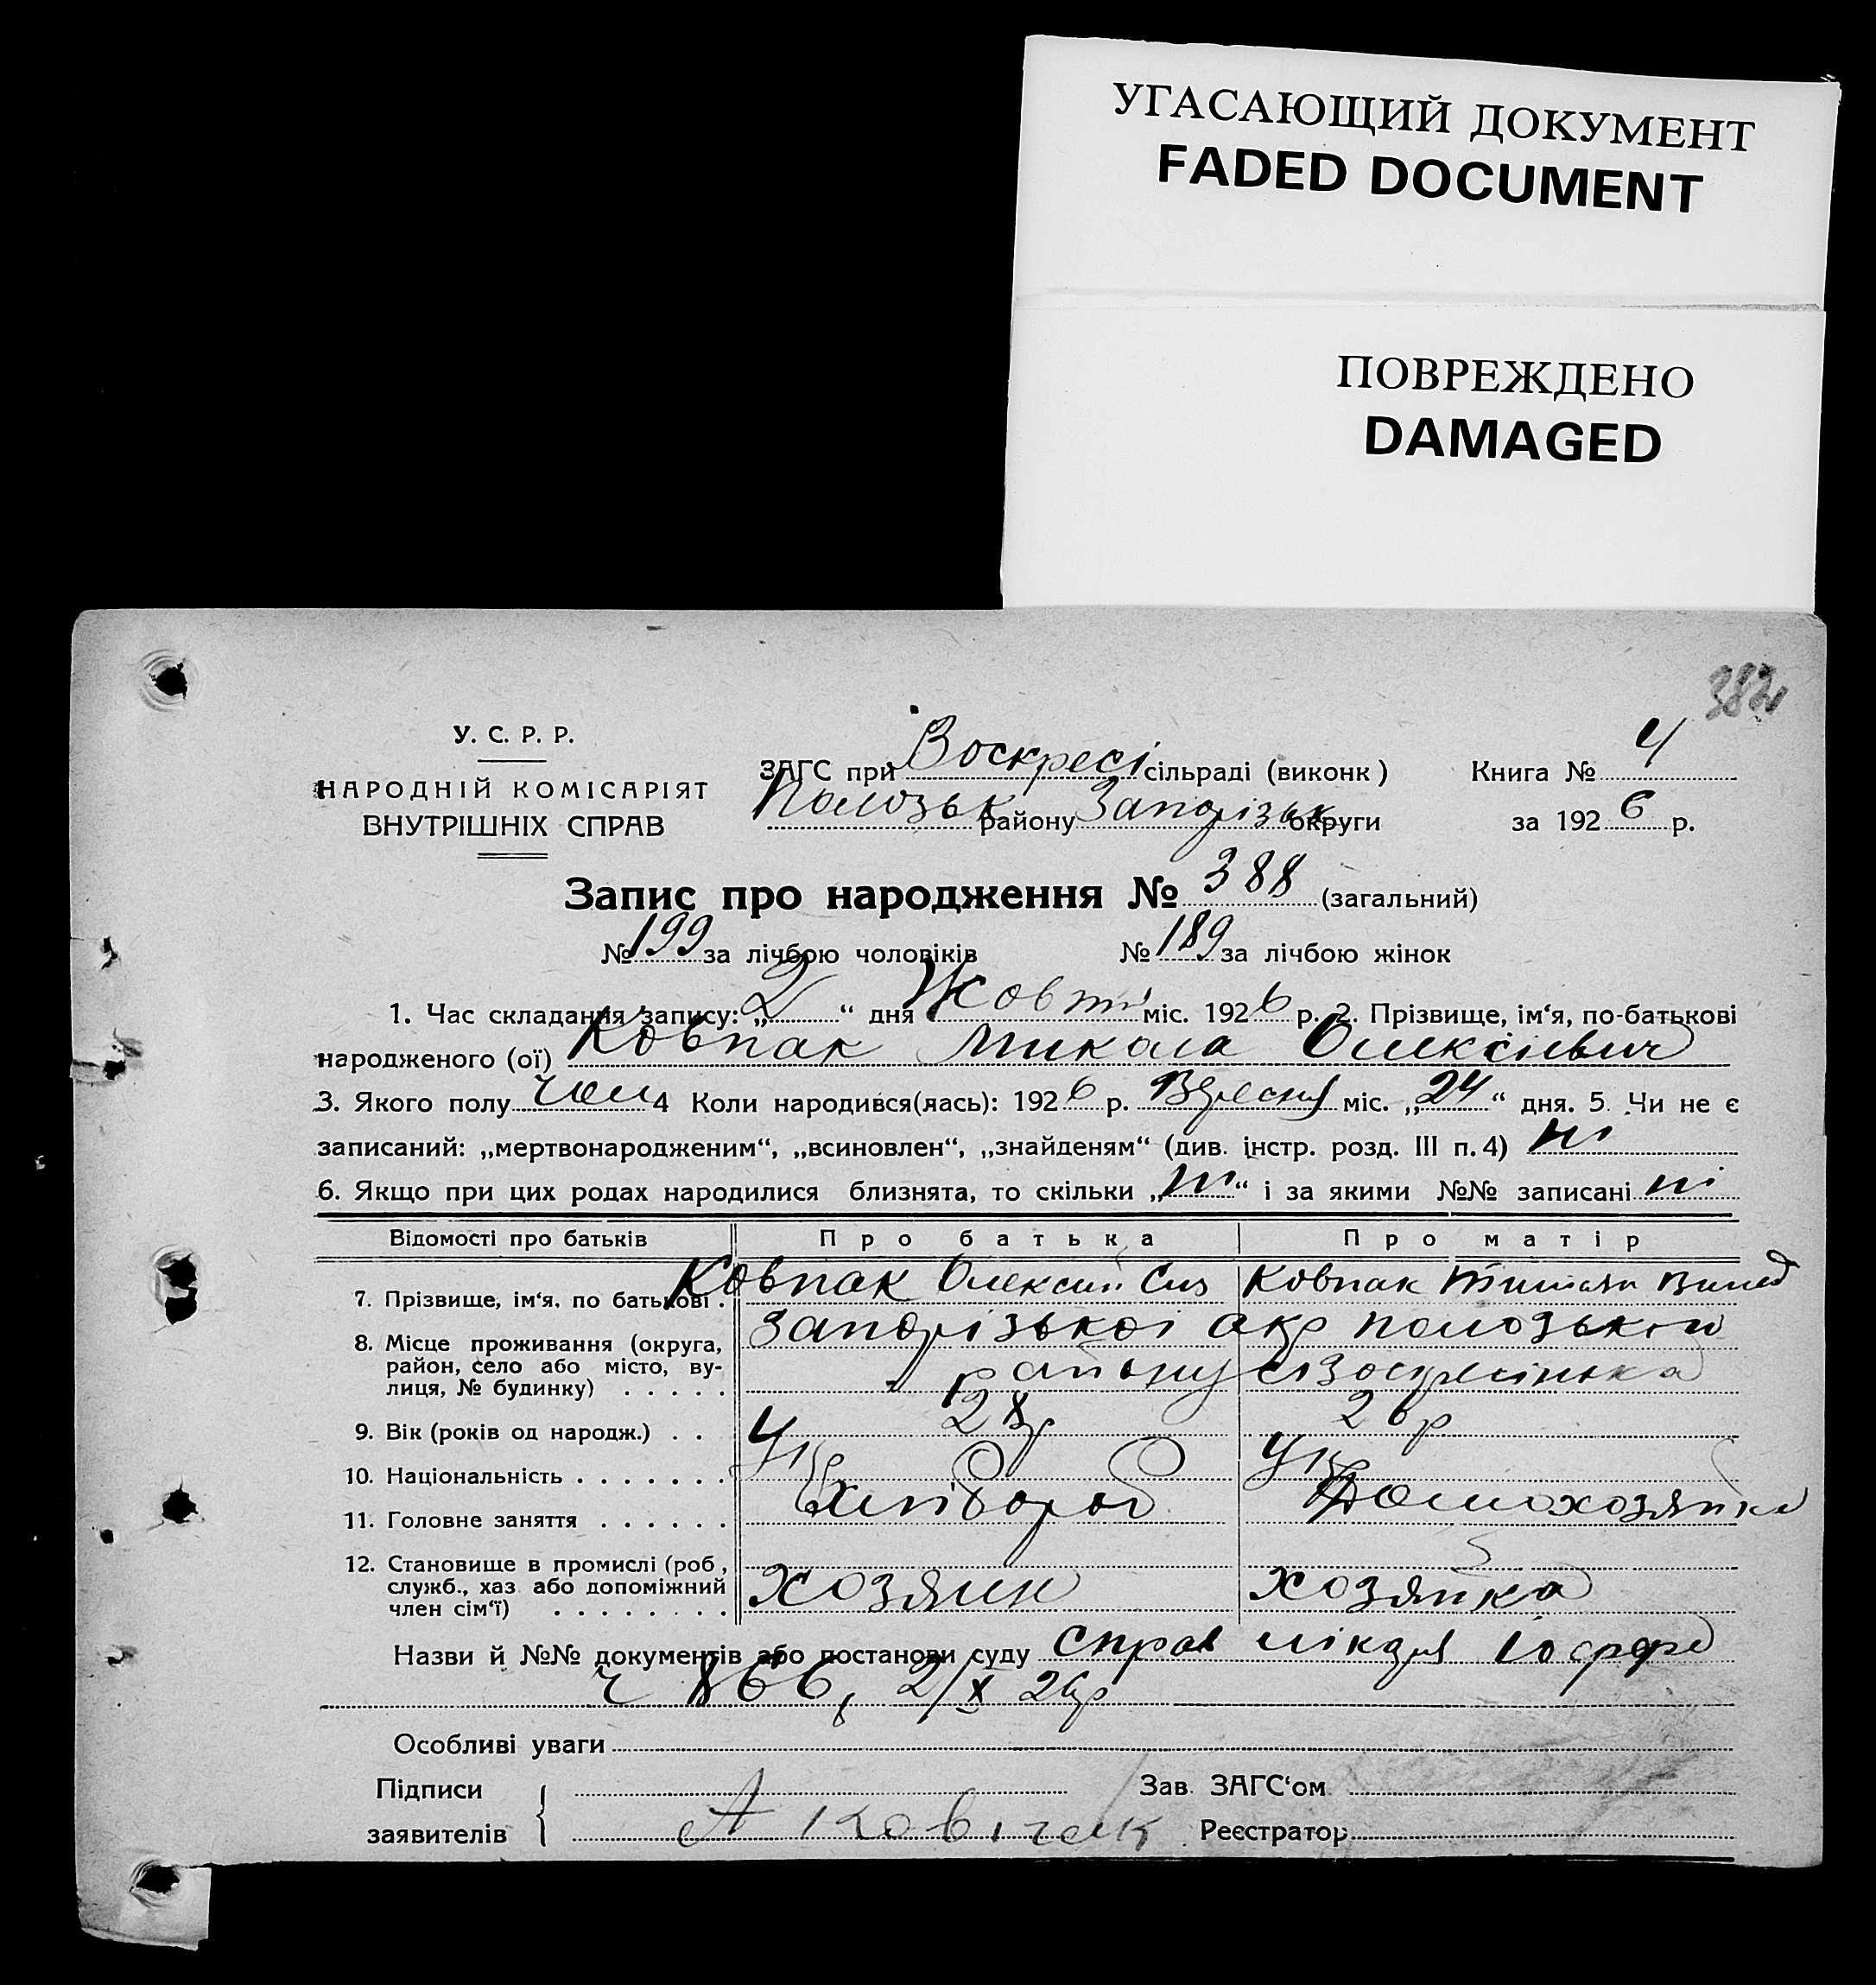 УГАСАЮЩИЙ ДОКУМЕНТ
FADED DOCUMENT
ПОВРЕЖДЕНО
DAMAGED
382
У. С. Р. Р.
НАРОДНІЙ КОМІСАРІЯТ
ВНУТРІШНІХ СПРАВ
ЗАГС при Воскресі сільраді (виконк) Книга № 4
Пологськ району Запорізьк округи за 1926 р.
Запис про народження № 388 (загальний)
№ 199 за лічбою чоловіків № 189 за лічбою жінок
1. Час складання запису: „2“ дня Жовтн міс. 1926 р. 2. Прізвище, ім‘я, по-батькові
народженого (ої) Ковпак Микола Олексієвич
3. Якого полу чол 4 Коли народився(лась): 1926 р. Вересня міс. „24“ дня. 5. Чи не є
записаний: „мертвонародженим“, „всиновлен“, „знайденям“ (див. інстр. розд. III п. 4) ні
6. Якщо при цих родах народилися близнята, то скільки „ні“ і за якими №№ записані ні
Відомості про батьків Про батька Про матір
7. Прізвище, ім‘я, по батькові . Ковпак Олексій Ковпак
8. Місце проживання (округа, Запорізької окр пологської
район, село або місто, ву- району
лиця, № будинку) . . . . .
9. Вік (років од народж.) . . 28р 26р
10. Національність . . . . . . . Укр Укр
11. Головне заняття . . . . . . Хлібороб Домохозяйка
12. Становище в промислі (роб,
служб., хаз або допоміжний хозяин хозяйка
член сім‘ї) . . . . . . . .
Назви й №№ документів або постанови суду справ лікаря
ч 866, 2/X 26р
Особливі уваги
Підписи Зав. ЗАГС‘ом
заявителів А Ковпак Реєстратор